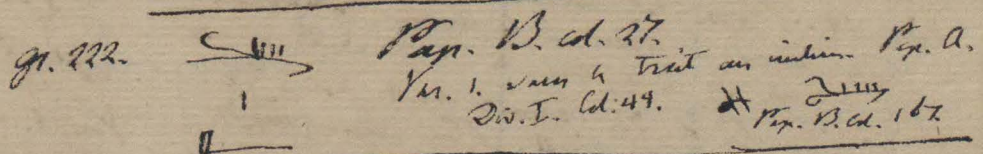 gr. 222. Pap. B. col. 27.
Var. 1. sans le trait au milieu Pap. A.
Div. I. Col. 44. Pap. B. col. 167.